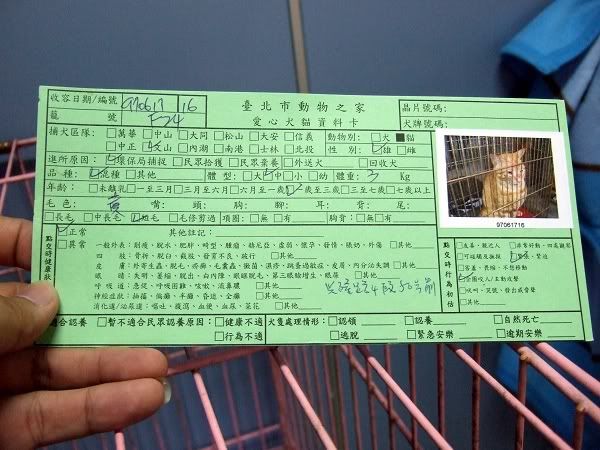 收容日期/編號 970617 16 臺北市動物之家 晶片號碼:
籠號 F24 愛心犬貓資料卡 犬牌號碼:
捕犬區隊: □萬華 □中山 □大同 □松山 □大安 □信義 動物別: □犬 ■貓
□中正 □文山 □內湖 □南港 □士林 □北投 性別: ☑雄 □雌
進所原因: ☑環保局捕捉 □民眾拾獲 □民眾棄養 □外送犬 □回收犬
品種: ☑混種 □其他 體型: □大 ☑中 □小 體重: 3 Kg
年齡: □未離乳 □一至三月 □三月至六月 □六月至一歲 ☑一歲至三歲 □三至七歲 □七歲以上
毛色: 黃 嘴: 頭: 腳: 耳: 背: 尾:
□長毛 □中長毛 ☑短毛 □毛修剪過 項圈: □無 □有 胸背: □無 □有
97061716
點交時健康狀 ☑正常 其他註記:
□異常 一般外表: 削瘦、脫水、肥胖、畸型、腫瘤、赫尼亞、虛弱、懷孕、發情、脹奶、外傷 □其他
四肢: 骨折、脫臼、截肢、發育不良、跛行 □其他
皮膚: 外寄生蟲、脫毛、疥癬、毛囊蟲、黴菌、潰瘍、跳蚤過敏症、皮屑、內分泌失調 □其他
眼睛: 失明、萎縮、脫出、白內障、眼瞼脫毛、第三眼瞼增生、乾眼 □其他
呼吸道: 急促、呼吸困難、咳嗽、流鼻膿 □其他
神經症狀: 抽搐、偏癱、半癱、昏迷、全癱 □其他
消化道/泌尿道: 嘔吐、腹瀉、血便、血尿、菜花 □其他
點交時行為初估
□友善、親近人 □非常好動、四處亂竄
□可碰觸及撫摸 □緊張、緊迫
□害羞、畏縮、不想移動
□企圖咬人/主動攻擊
□吠叫、哭號、發出威脅聲
□其他
適合認養 □暫不適合民眾認養原因: □健康不適 犬隻處理情形: □認領 □認養 □自然死亡
□行為不適 □逃脫 □緊急安樂 □逾期安樂